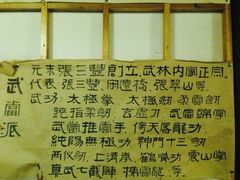 武當派
元末張三豐創立,武林内家正宗。
代表張三豐、宋遠橋、張翠山等。
武功:太極拳、太極劍、柔雲劍
繞指柔劍、玄虛刀、武當綿掌
武當推雲手、倚天屠龍功、
純陽無極功、神門十三劍
兩儀劍、上清拳、鶴嘴功、震山掌
真武七截陣、梯雲縱、等